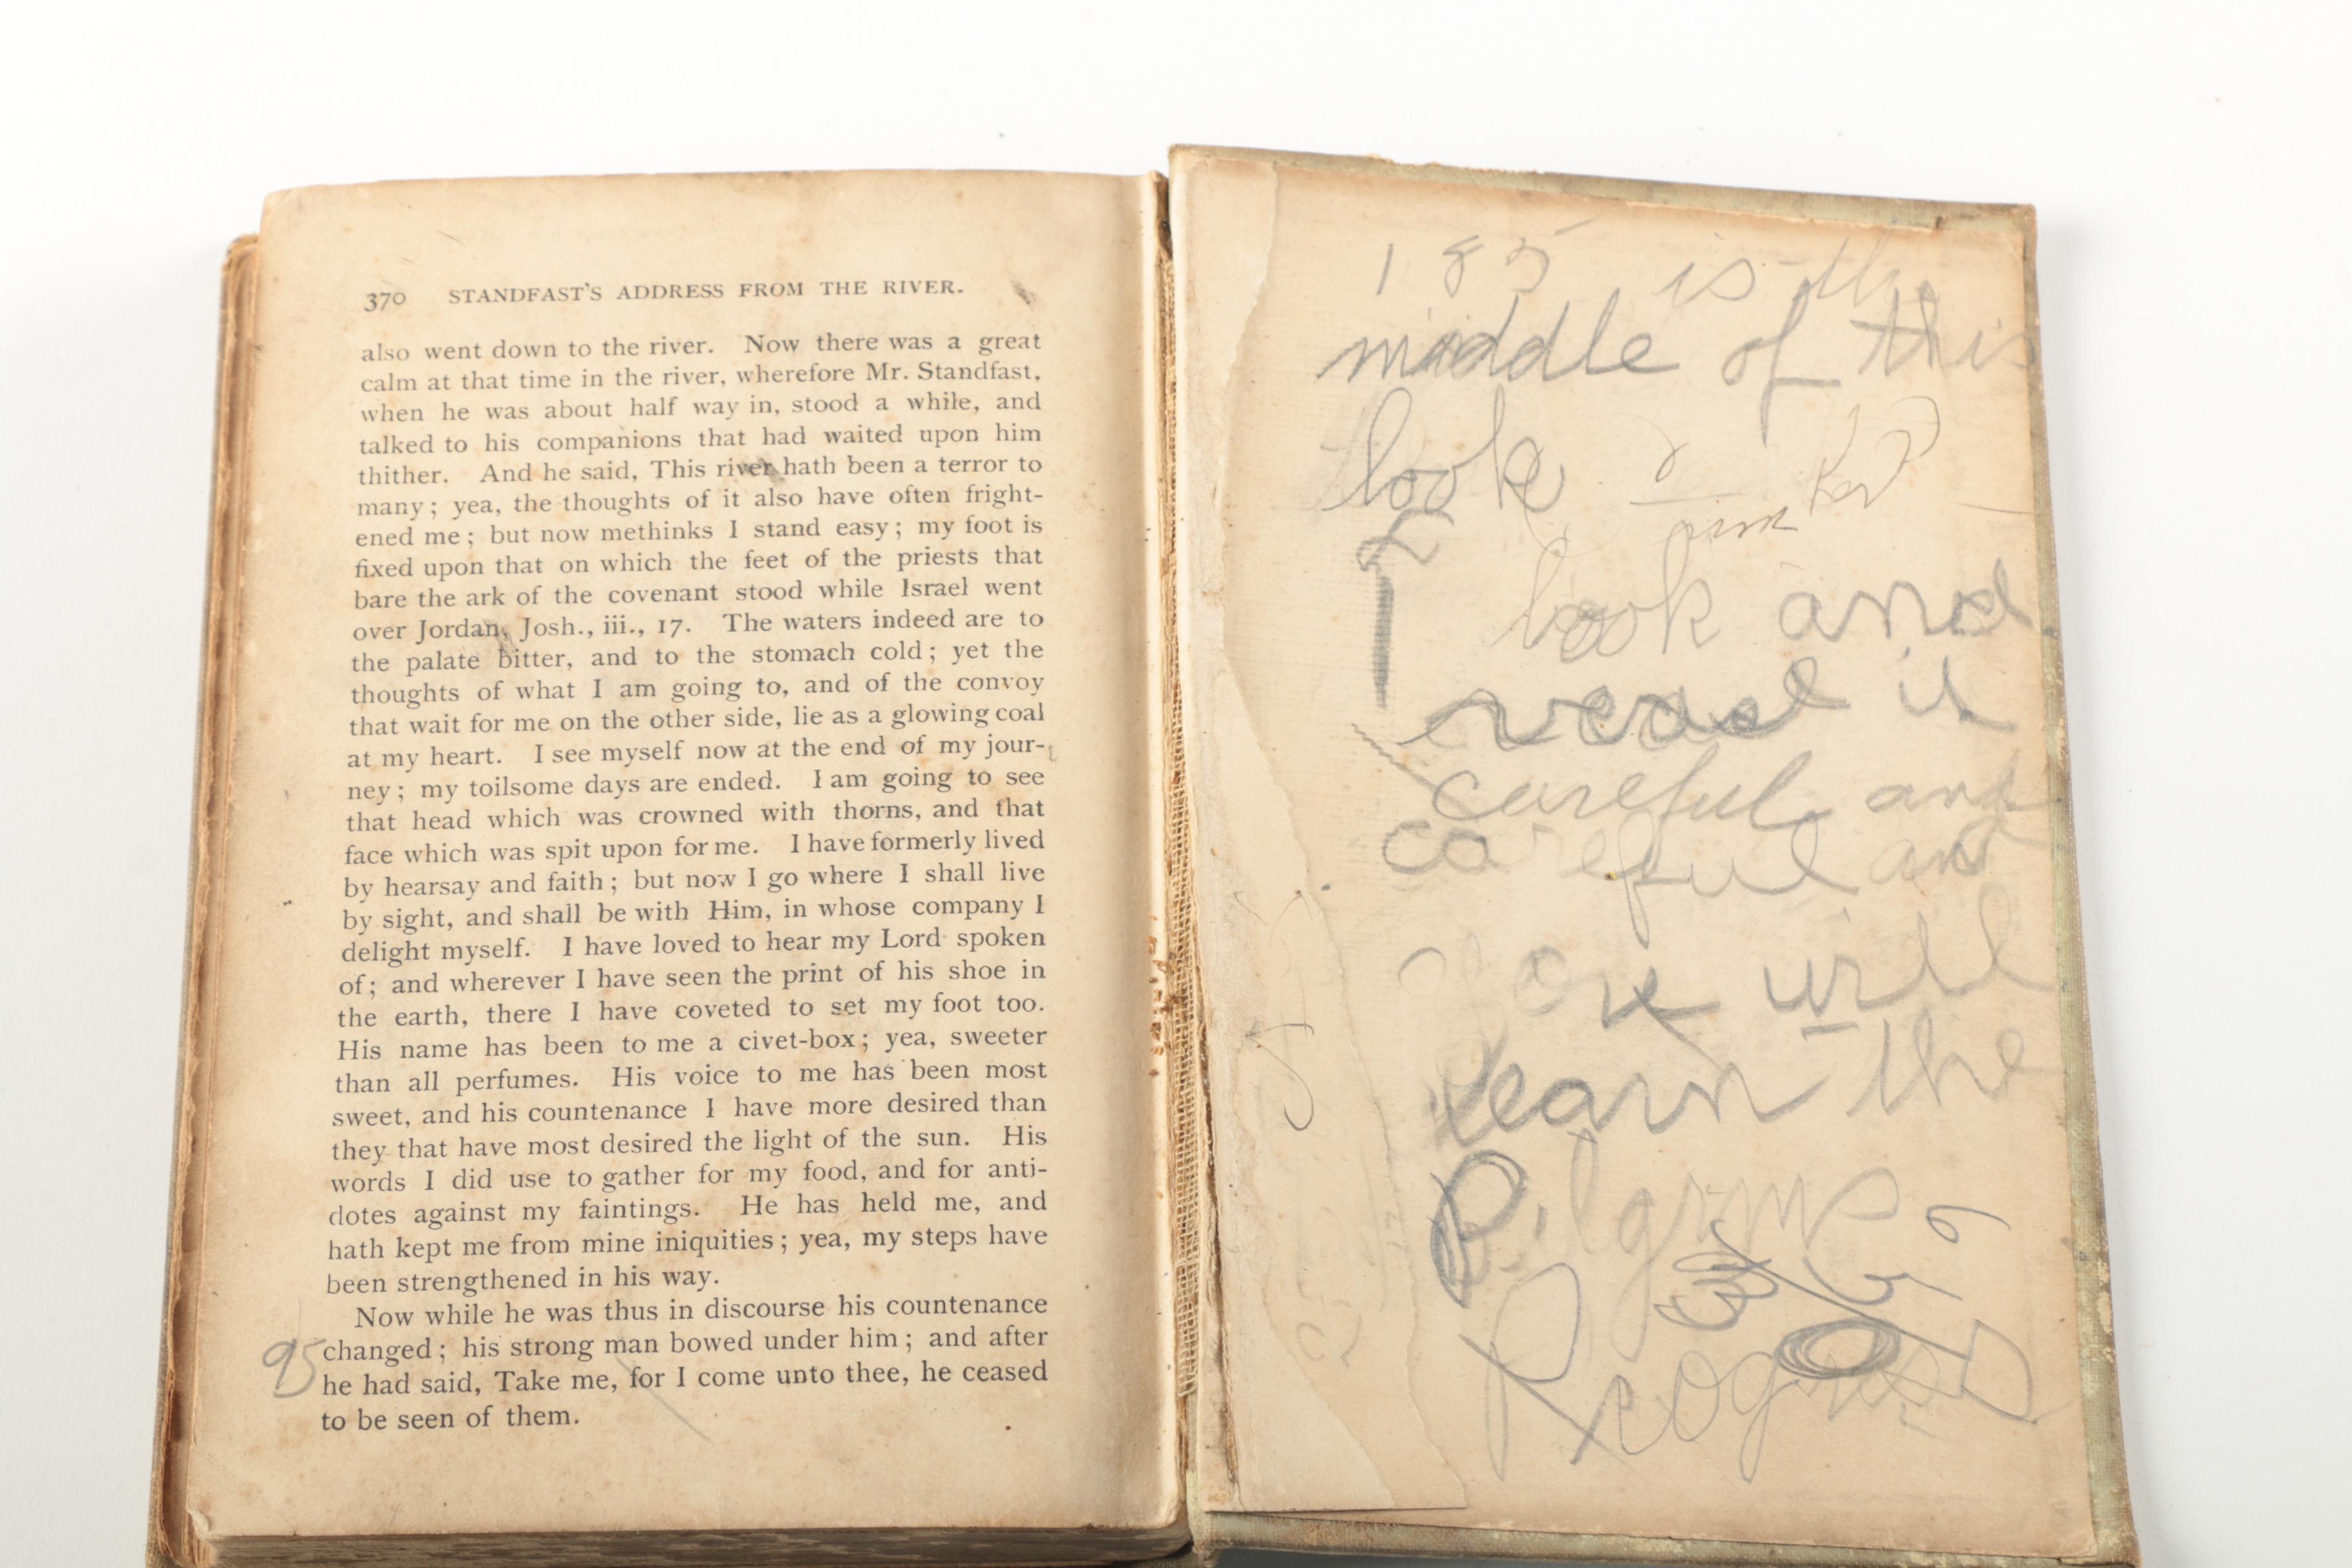 370 STANDFAST'S ADDRESS FROM THE RIVER.
also went down to the river. Now there was a great
calm at that time in the river, wherefore Mr. Standfast,
when he was about half way in, stood a while, and
talked to his companions that had waited upon him
thither. And he said, This river hath been a terror to
many; yea, the thoughts of it also have often fright-
ened me; but now methinks I stand easy; my foot is
fixed upon that on which the feet of the priests that
bare the ark of the covenant stood while Israel went
over Jordan, Josh., iii., 17. The waters indeed are to
the palate bitter, and to the stomach cold; yet the
thoughts of what I am going to, and of the convoy
that wait for me on the other side, lie as a glowing coal
at my heart. I see myself now at the end of my jour-
ney; my toilsome days are ended. I am going to see
that head which was crowned with thorns, and that
face which was spit upon for me. I have formerly lived
by hearsay and faith; but now I go where I shall live
by sight, and shall be with Him, in whose company I
delight myself. I have loved to hear my Lord spoken
of; and wherever I have seen the print of his shoe in
the earth, there I have coveted to set my foot too.
His name has been to me a civet-box; yea, sweeter
than all perfumes. His voice to me has been most
sweet, and his countenance I have more desired than
they that have most desired the light of the sun. His
words I did use to gather for my food, and for anti-
dotes against my faintings. He has held me, and
hath kept me from mine iniquities; yea, my steps have
been strengthened in his way.
Now while he was thus in discourse his countenance
changed; his strong man bowed under him; and after
95
he had said, Take me, for I come unto thee, he ceased
to be seen of them.
185 is the
middle of this
look
look and
read it
careful and
careful and
you will
learn the
Pilgrms